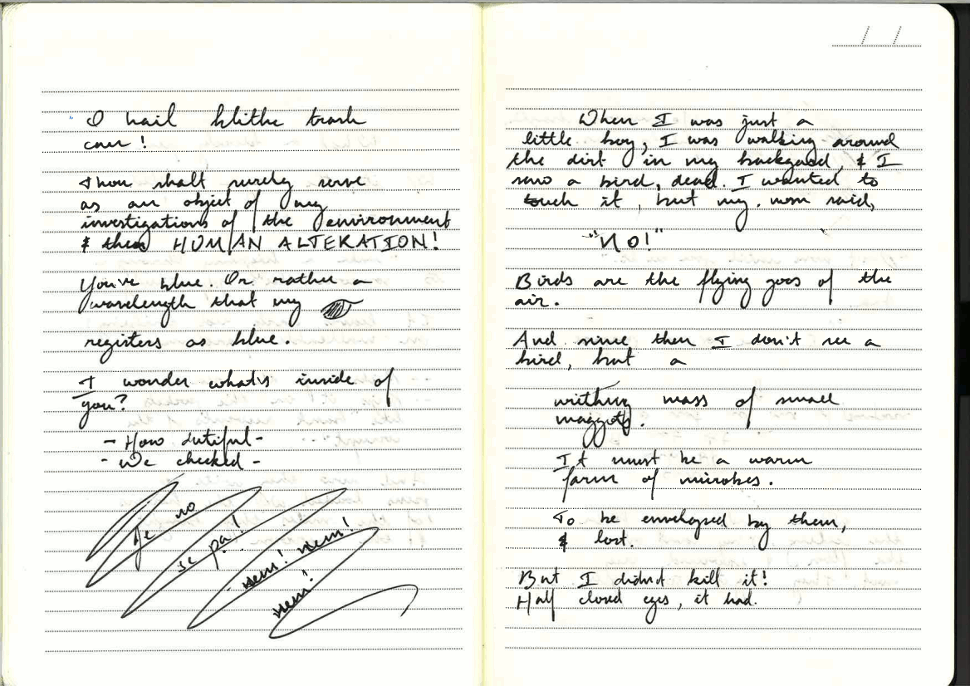 I hail blithe trash
can!
Thou shalt purely serve
as an object of my
investigations of the environment
& then HUMAN ALTERATION!
You're blue. Or rather a
wavelength that my
registers as blue.
I wonder what's inside of
you?
- How dutiful -
- We checked -
Je no
se pa!
nem! nem!
nem!
/ /
When I was just a
little boy, I was walking around
the dirt in my backyard, & I
saw a bird, dead. I wanted to
touch it, but my mom said,
"NO!"
Birds are the flying goos of the
air.
And since then I don't see a
bird, but a
writhing mass of small
maggots.
It must be a warm
farm of microbes.
To be enveloped by them,
& lost.
But I didn't kill it!
Half closed eyes, it had.